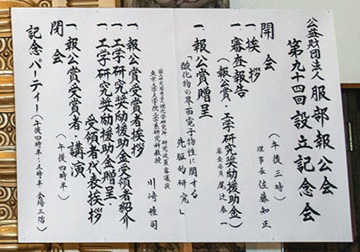 公益財団法人 服部報公会
第九十四回 設立記念会
(午後三時)
開会
一、挨拶 理事長 佐藤知正
一、審査報告
(報公賞、工学研究奨励援助金) 審査委員 尾辻泰一
一、報公賞贈呈
「酸化物の界面電子物性に関する
先駆的研究」
東京大学大学院工学系研究科教授 川﨑雅司
一、報公賞受賞者挨拶
一、工学研究奨励援助金受領者紹介
一、工学研究奨励援助金贈呈・
受領者代表挨拶
一、報公賞受賞者・講演
閉会 (午後四時半)
記念パーティー(午後四時半〜五時半